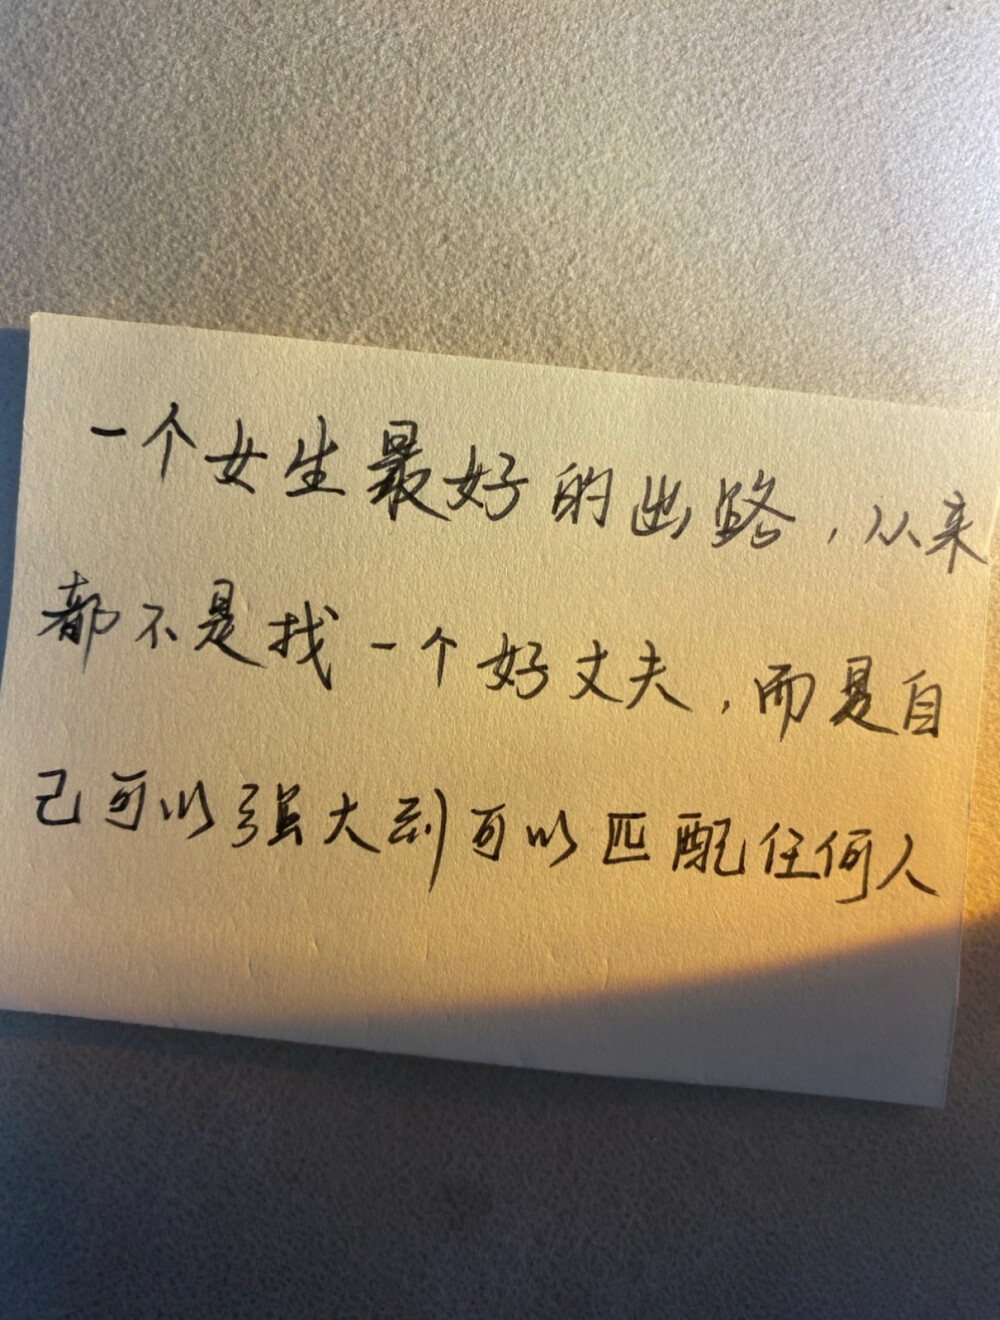 一个女生最好的出路，从来
都不是找一个好丈夫，而是自
己可以强大到可以匹配任何人